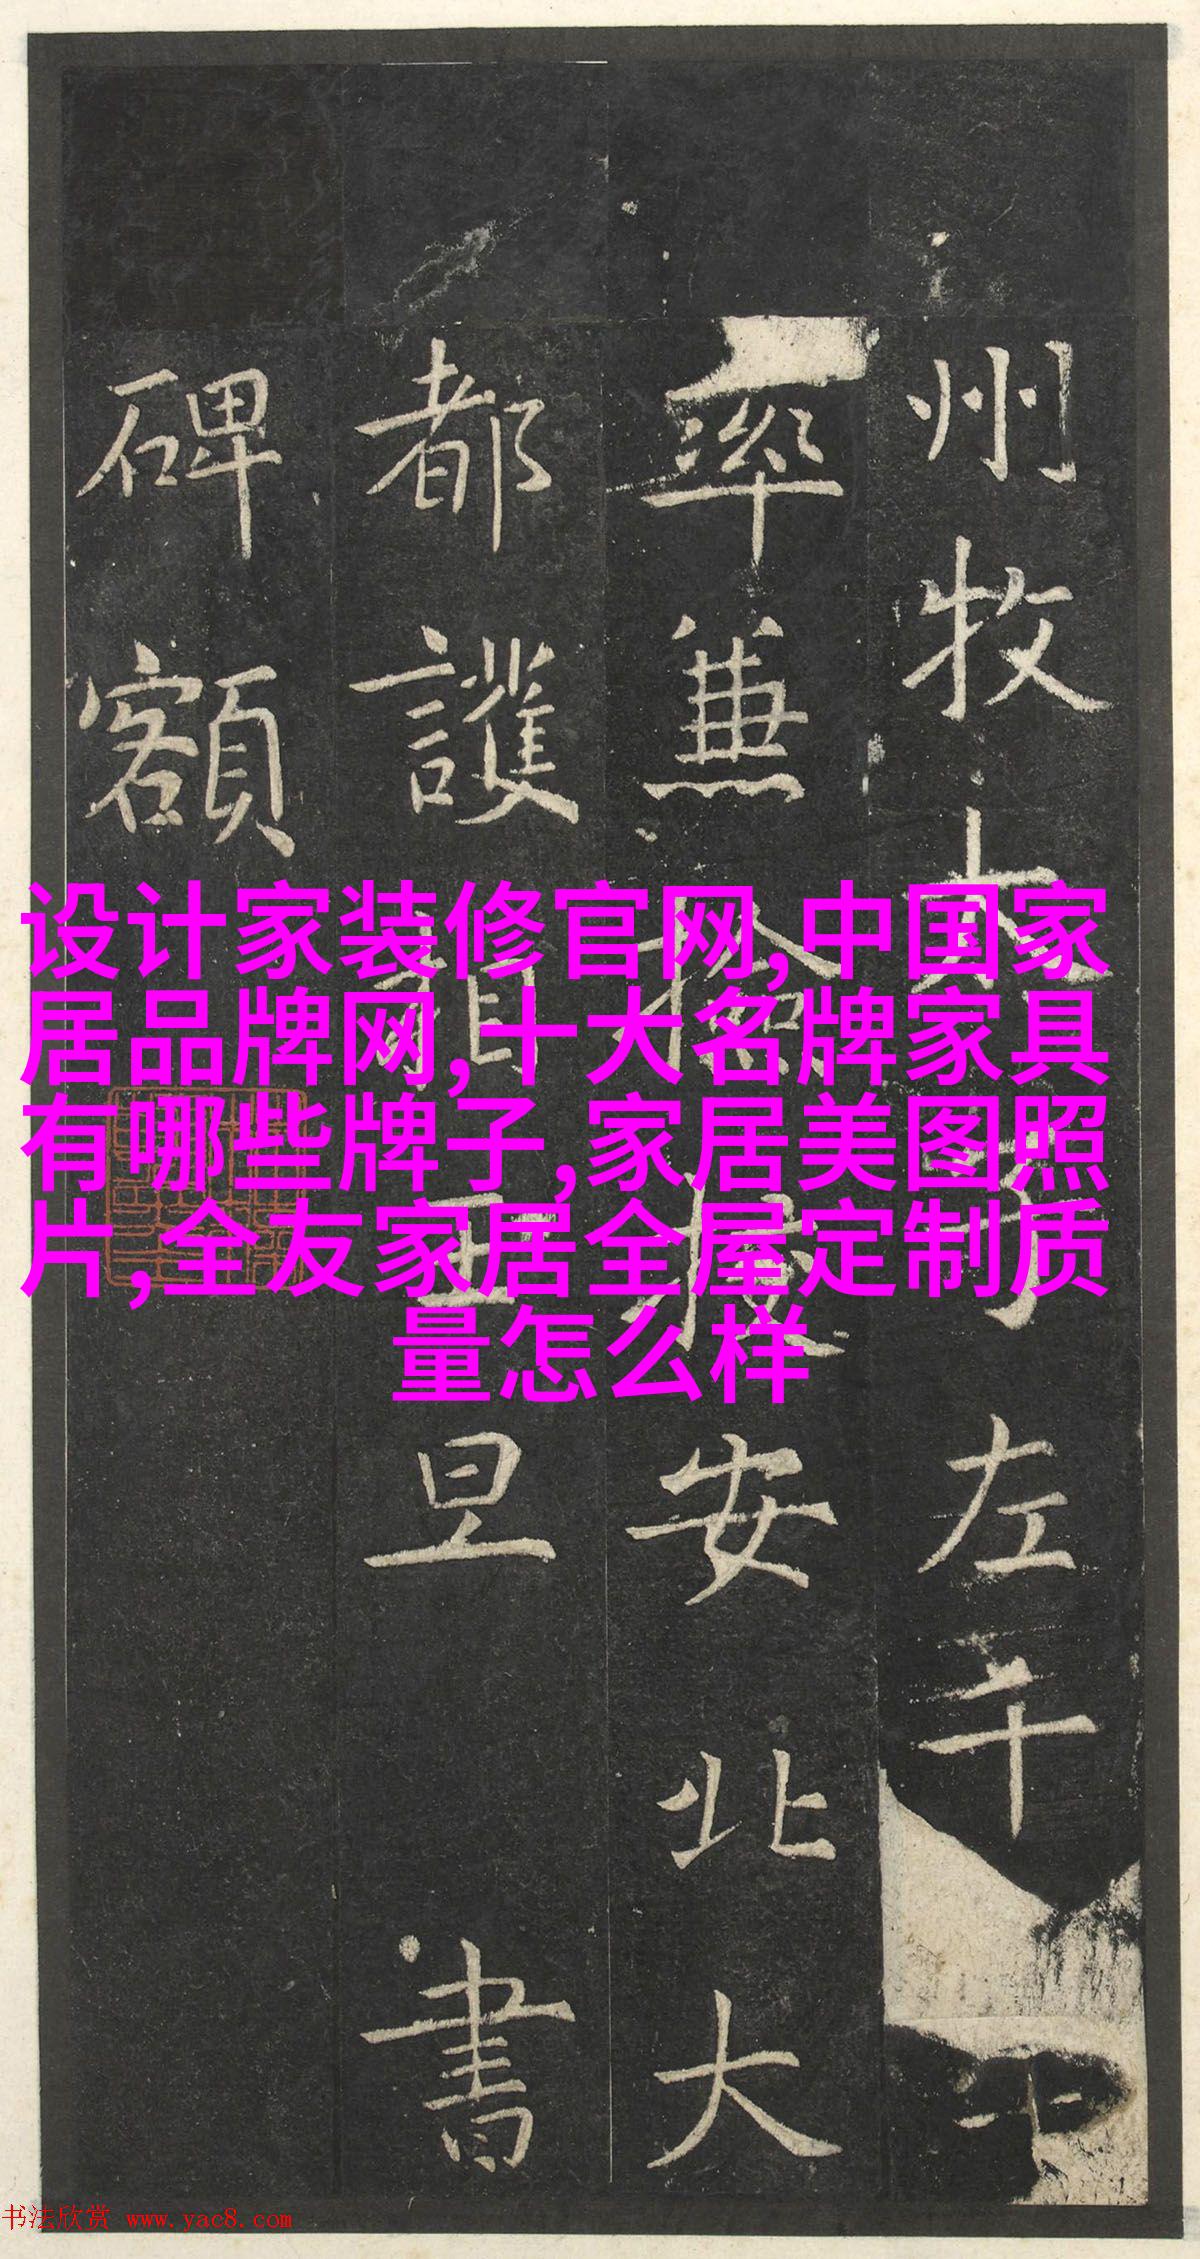 州牧太子左千
率兼撿挍安北大
都護相王旦書
碑額
设计家装修官网,中国家
居品牌网,十大名牌家具
有哪些牌子,家居美图照
片,全友家居全屋定制质
量怎么样
书法欣赏 www.yac8.com